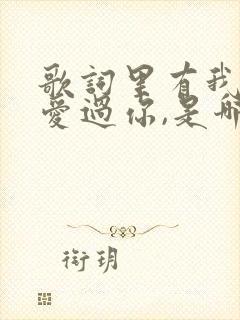 歌詞里有我
愛過你,是哪
衔玥